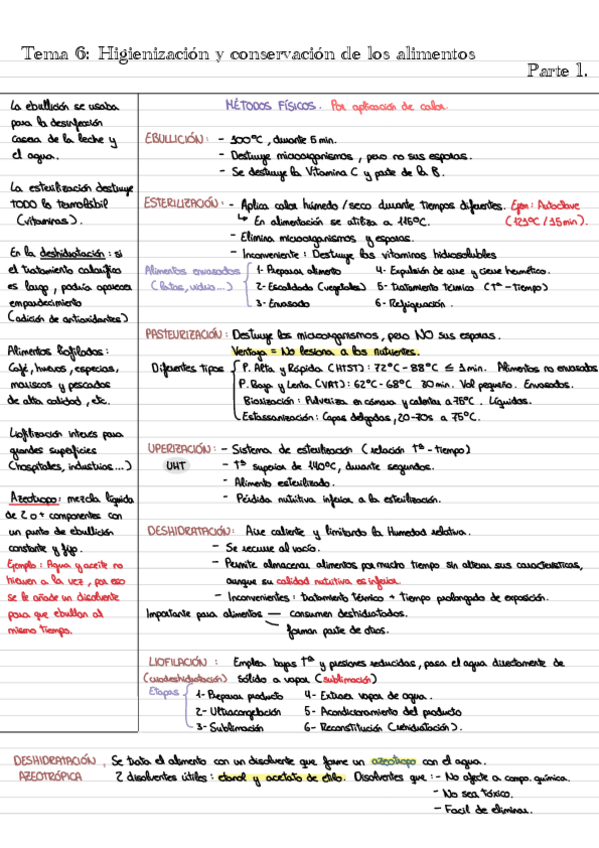 Tema 6: Higienización y conservación de los alimentos
Parte 1.
La ebullición se usaba
para la desinfección
casera de la leche y
el agua.
La esterilización destruye
TODO lo termolábil
(vitaminas).
En la deshidratación: si
el tratamiento calorífico
es largo, podría aparecer
empardecimiento
(adición de antioxidantes)
Alimentos liofilizados:
Café, huevos, especias,
mariscos y pescados
de alta calidad, etc.
Liofilización interés para
grandes superficies
(hospitales, industrias...)
Azeotropo: mezcla líquida
de 2 o + componentes con
un punto de ebullición
constante y fijo.
Ejemplo: Agua y aceite no
hierven a la vez, por eso
se le añade un disolvente
para que ebullan al
mismo tiempo.
MÉTODOS FÍSICOS. Por aplicación de calor.
EBULLICIÓN: - 100ºC, durante 5 min.
- Destruye microorganismos, pero no sus esporas.
- Se destruye la Vitamina C y parte de la B.
ESTERILIZACIÓN: - Aplica calor húmedo/seco durante tiempos diferentes. Ejem: Autoclave
↳ En alimentación se utiliza a 115ºC. (121ºC/15min).
- Elimina microorganismos y esporas.
- Inconveniente: Destruye las vitaminas hidrosolubles
Alimentos envasados 1- Preparar alimento 4- Expulsión de aire y cierre hermético.
(latas, vidrio...) 2- Escaldado (vegetales) 5- tratamiento térmico (Tª-Tiempo)
3- Envasado 6- Refrigeración.
PASTEURIZACIÓN: Destruye los microorganismos, pero NO sus esporas.
Ventaja = No lesiona a los nutrientes.
Diferentes tipos P. Alta y Rápida (HTST): 72ºC-88ºC ≤ 1min. Alimentos no envasados
P. Baja y Lenta (VAT): 62ºC-68ºC 30min. Vol pequeño. Envasados.
Biorización: Pulveriza en cámara y calentar a 75ºC. Líquidos.
Estassanización: Capas delgadas, 20-70s a 75ºC.
UPERIZACIÓN: - Sistema de esterilización (relación Tª-tiempo)
UHT - Tª superior de 140ºC, durante segundos.
- Alimento esterilizado.
- Pérdida nutritiva inferior a la esterilización.
DESHIDRATACIÓN: Aire caliente y limitando la Humedad relativa.
- Se recurre al vacío.
- Permite almacenar alimentos por mucho tiempo sin alterar sus características,
aunque su calidad nutritiva es inferior.
- Inconvenientes: tratamiento térmico + tiempo prolongado de exposición.
Importante para alimentos — consumen deshidratados.
forman parte de otros.
LIOFILACIÓN: Emplea bajas Tª y presiones reducidas, pasa el agua directamente de
(criodeshidratación) sólido a vapor (sublimación)
Etapas 1- Preparar producto 4- Extraer vapor de agua.
2- Ultracongelación 5- Acondicionamiento del producto
3- Sublimación 6- Reconstitución (rehidratación).
DESHIDRATACIÓN, Se trata el alimento con un disolvente que forme un azeotropo con el agua.
AZEOTRÓPICA 2 disolventes útiles: etanol y acetato de etilo. Disolventes que: - No afecte a compo. química.
- No sea tóxico.
- Facil de eliminar.